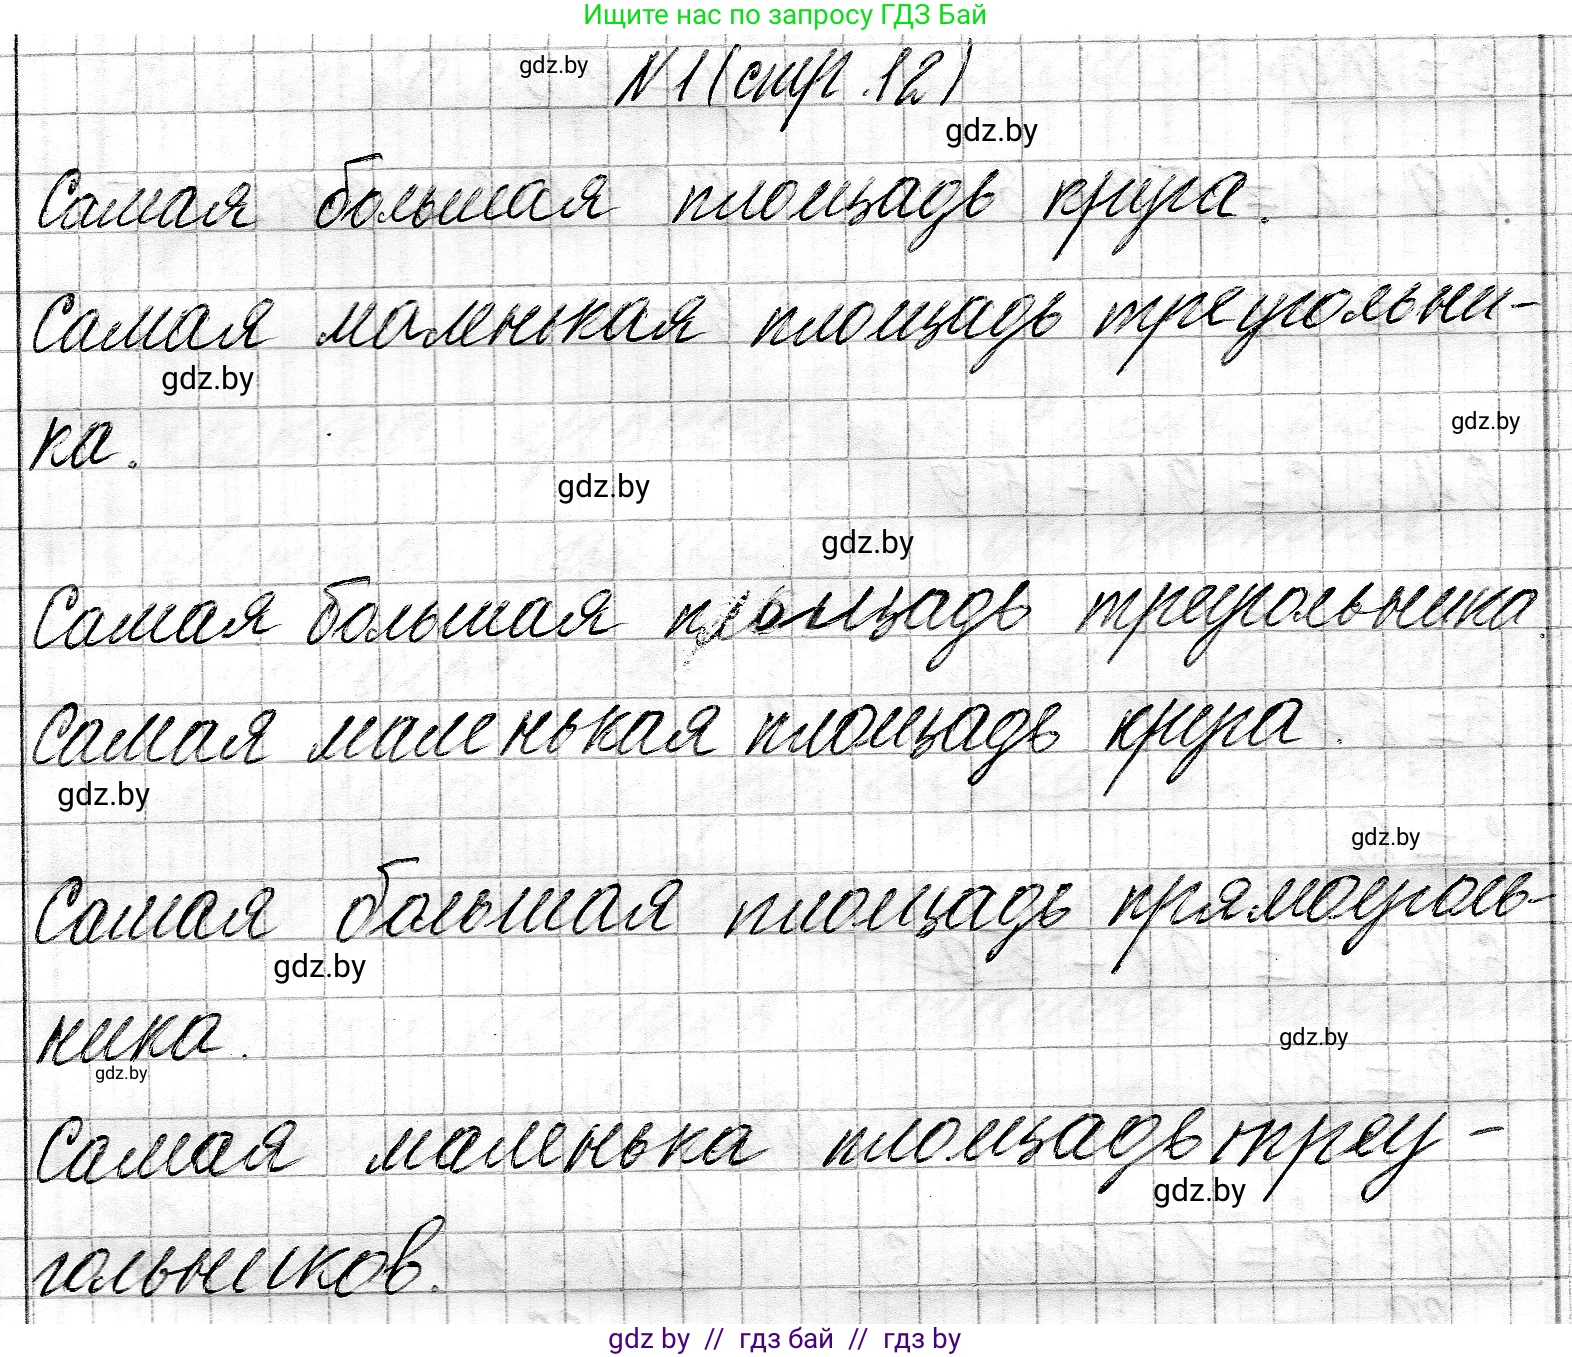 Ищите нас по запросу ГДЗ Бай
gdz.by
N 1 (стр. 12)
gdz.by
Самая большая площадь круга.
Самая маленькая площадь треугольни-
gdz.by
ка.
gdz.by
gdz.by
gdz.by
Самая большая площадь треугольника.
Самая маленькая площадь круга.
gdz.by
gdz.by
Самая большая площадь прямоуголь-
gdz.by
ника.
gdz.by
gdz.by
Самая маленька площадь треу-
gdz.by
гольников.
gdz by // гдз бай // гдз by